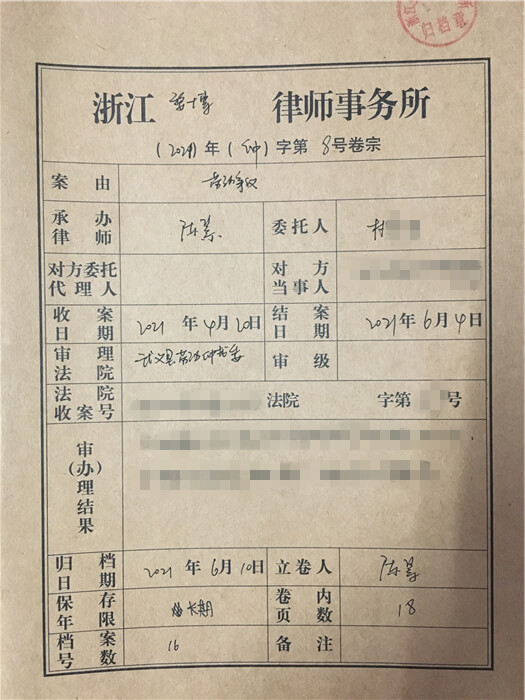 浙江 律师事务所
(2021)年(仲)字第 8号卷宗
案由 劳动争议
承办律师 陈 委托人
对方委托代理人 对方当事人
收案日期 2021年4月20日 结案日期 2021年6月4日
审理法院 武义县劳动仲裁委 审级
法院收案号 法院 字第 号
审(办)理结果
归档日期 2021年6月10日 立卷人 陈
保存年限 长期 卷内页数 18
档案号数 16 备注